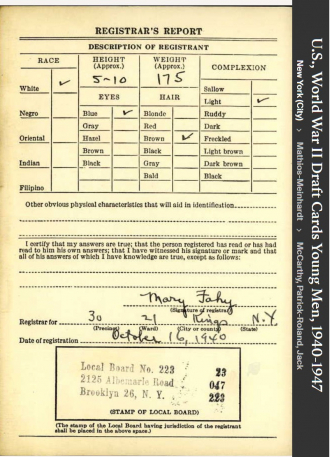 REGISTRAR'S REPORT
DESCRIPTION OF REGISTRANT
RACE HEIGHT (Approx.) WEIGHT (Approx.) COMPLEXION
5-10 175
White ✓ Sallow
EYES HAIR Light ✓
Negro Blue ✓ Blonde Ruddy
Gray Red Dark
Oriental Hazel Brown ✓ Freckled
Brown Black Light brown
Indian Black Gray Dark brown
Bald Black
Filipino
Other obvious physical characteristics that will aid in identification
I certify that my answers are true; that the person registered has read or has had
read to him his own answers; that I have witnessed his signature or mark and that
all of his answers of which I have knowledge are true, except as follows:
Mary Fahy
(Signature of registrar)
Registrar for 30 21 Kings N.Y.
(Precinct) (Ward) (City or county) (State)
Date of registration October 16, 1940
Local Board No. 223 23
2125 Albemarle Road 047
Brooklyn 26, N. Y. 223
(STAMP OF LOCAL BOARD)
(The stamp of the Local Board having jurisdiction of the registrant
shall be placed in the above space.)
U.S., World War II Draft Cards Young Men, 1940-1947
New York (City) > Mathios-Meinhardt > McCarthy, Patrick-Roland, Jack